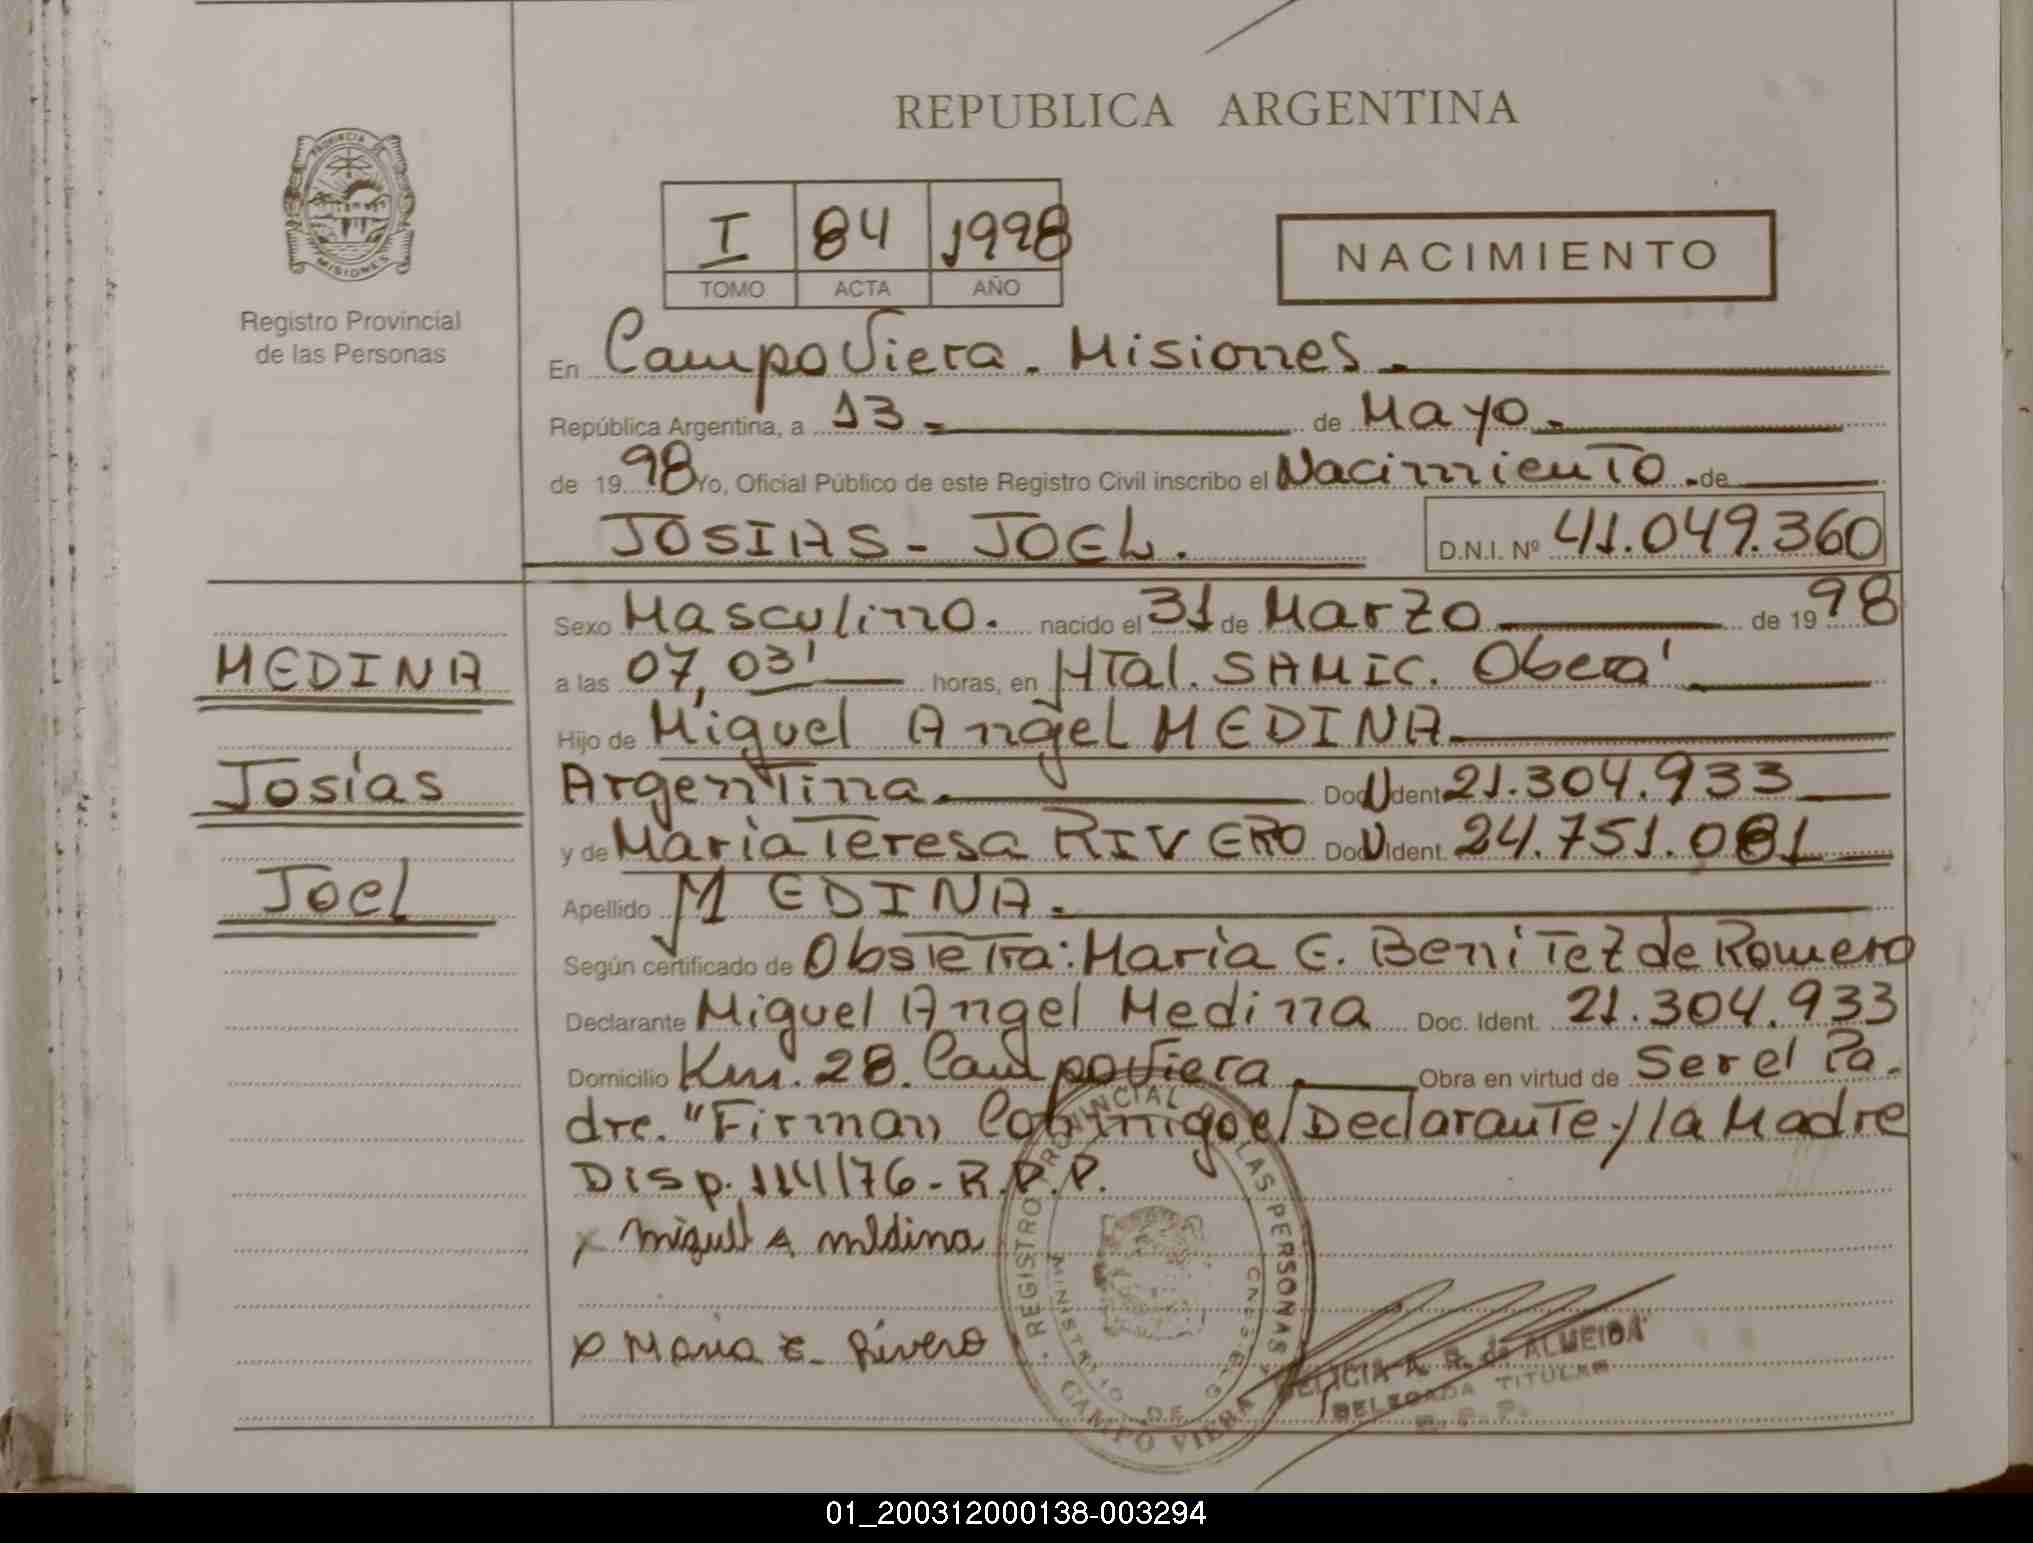 REPUBLICA ARGENTINA
PROVINCIA DE
MISIONES
Registro Provincial
de las Personas
I 84 1998
TOMO ACTA AÑO
NACIMIENTO
En Campo Viera. Misiones.
República Argentina, a 13 de Mayo.
de 19 98 Yo, Oficial Público de este Registro Civil inscribo el Nacimiento. de
JOSIAS - JOEL.
D.N.I. Nº 41.049.360
MEDINA
Josías
Joel
Sexo Masculino. nacido el 31 de Marzo de 19 98
a las 07,03' horas, en HTal. SAMIC. Oberá
Hijo de Miguel Angel MEDINA
Argentina. Doc U Ident 21.304.933
y de María Teresa RIVERO Doc U Ident. 24.751.081
Apellido MEDINA.
Según certificado de Obstetra: María E. Benitez de Romero
Declarante Miguel Angel Medina Doc. Ident. 21.304.933
Domicilio Km. 28. Campo Viera. Obra en virtud de Ser el Pa-
dre. "Firman Conmigo el Declarante y la Madre
Disp. 114/76 - R.P.P.
x Miguel A medina
x Maria t. Rivero
REGISTRO PROVINCIAL DE LAS PERSONAS
MINISTERIO DE
CAMPO VIERA
FELICIA A. R. de ALMEIDA
DELEGADA TITULAR
R. P. P.
01_200312000138-003294